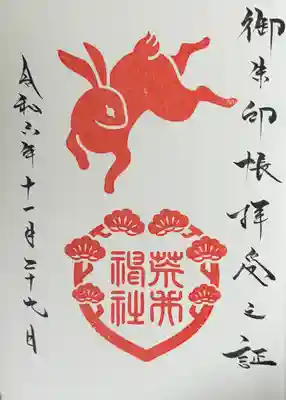 御朱印帳拝受之証
荒井神社
令和六年十一月二十九日